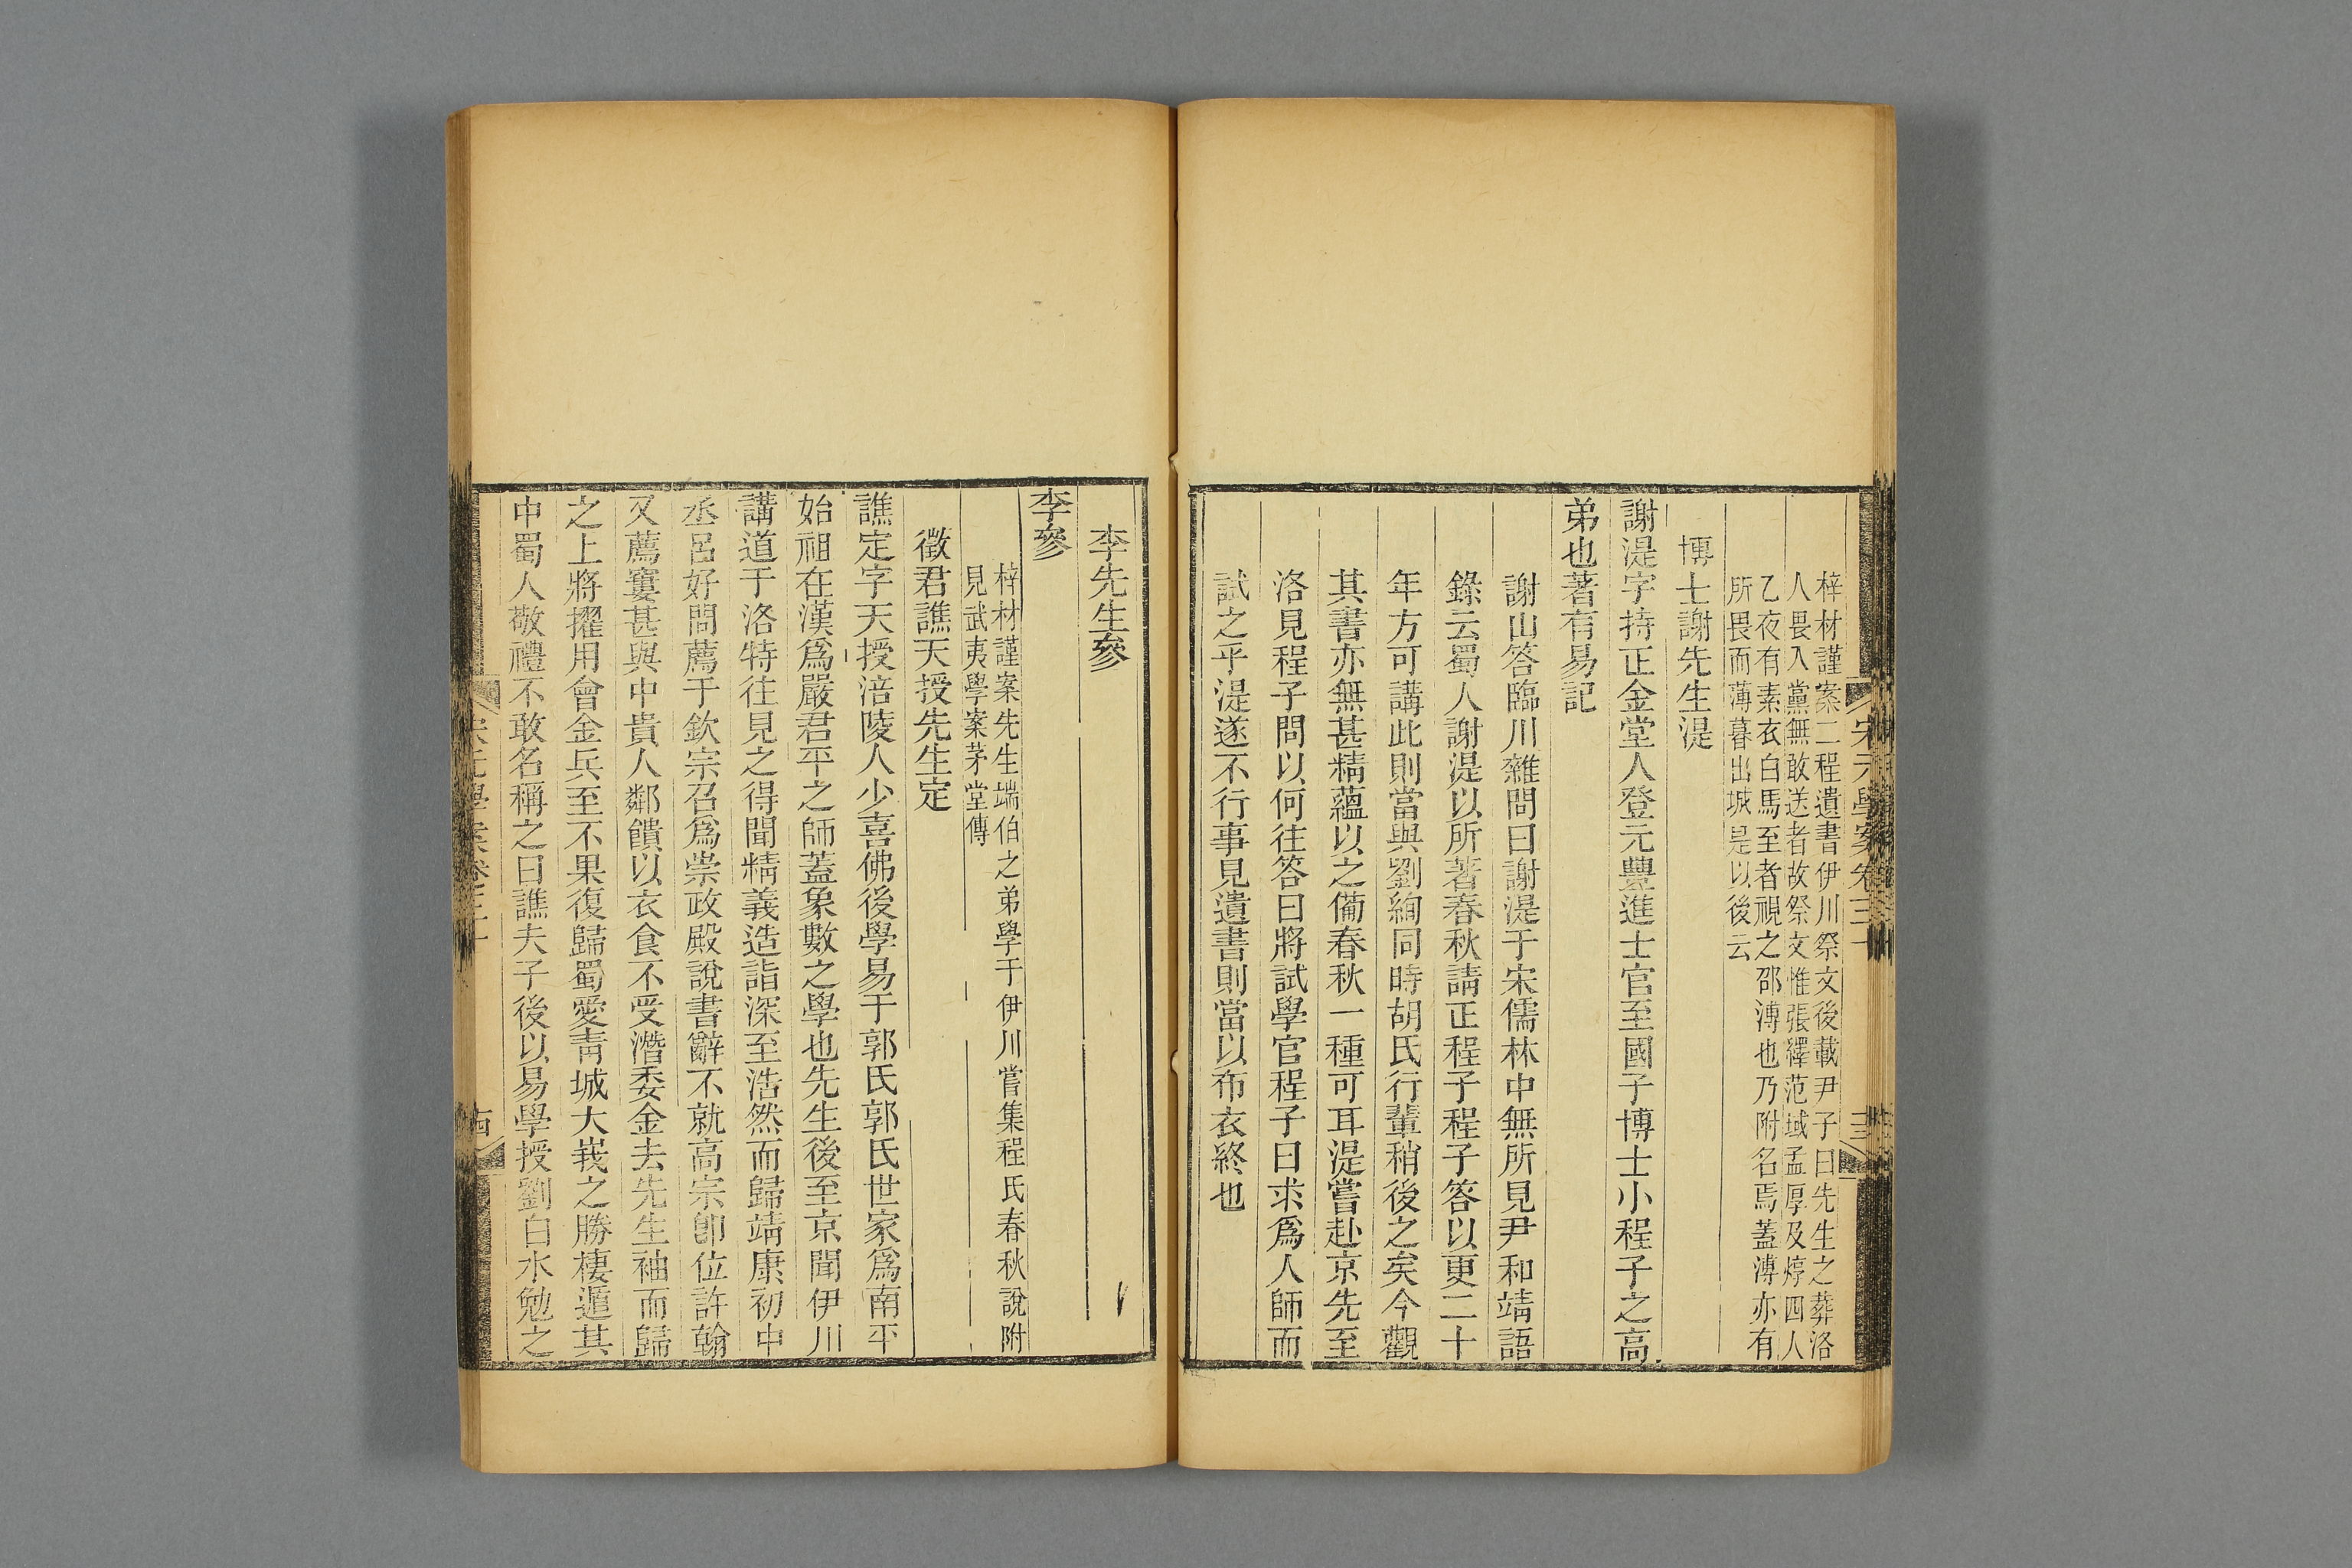 宋元學案卷三十
十三
梓材謹案二程遺書伊川祭文後載尹子曰先生之葬洛
人畏入黨無敢送者故祭文惟張繹范域孟厚及焞四人
乙夜有素衣白馬至者視之邵溥也乃附名焉蓋溥亦有
所畏而薄暮出城是以後云
博士謝先生湜
謝湜字持正金堂人登元豐進士官至國子博士小程子之高
弟也著有易記
謝山答臨川雜問曰謝湜于宋儒林中無所見尹和靖語
錄云蜀人謝湜以所著春秋請正程子程子答以更二十
年方可講此則當與劉絢同時胡氏行輩稍後之矣今觀
其書亦無甚精蘊以之備春秋一種可耳湜嘗赴京先至
洛見程子問以何往答曰將試學官程子曰求爲人師而
試之乎湜遂不行事見遺書則當以布衣終也
李先生參
李參
梓材謹案先生端伯之弟學于伊川嘗集程氏春秋說附
見武夷學案茅堂傳
徵君譙天授先生定
譙定字天授涪陵人少喜佛後學易于郭氏郭氏世家爲南平
始祖在漢爲嚴君平之師蓋象數之學也先生後至京聞伊川
講道于洛特往見之得聞精義造詣深至浩然而歸靖康初中
丞呂好問薦于欽宗召爲崇政殿說書辭不就高宗卽位許翰
又薦窶甚與中貴人鄰饋以衣食不受潛委金去先生袖而歸
之上將擢用會金兵至不果復歸蜀愛靑城大峩之勝棲遁其
中蜀人敬禮不敢名稱之曰譙夫子後以易學授劉白水勉之
宋元學案卷三十
十四